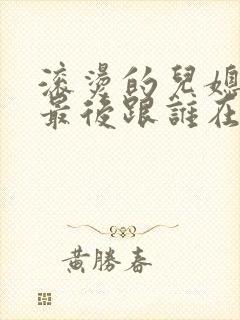 滚燙的兒媳
最後跟誰在
黃勝春